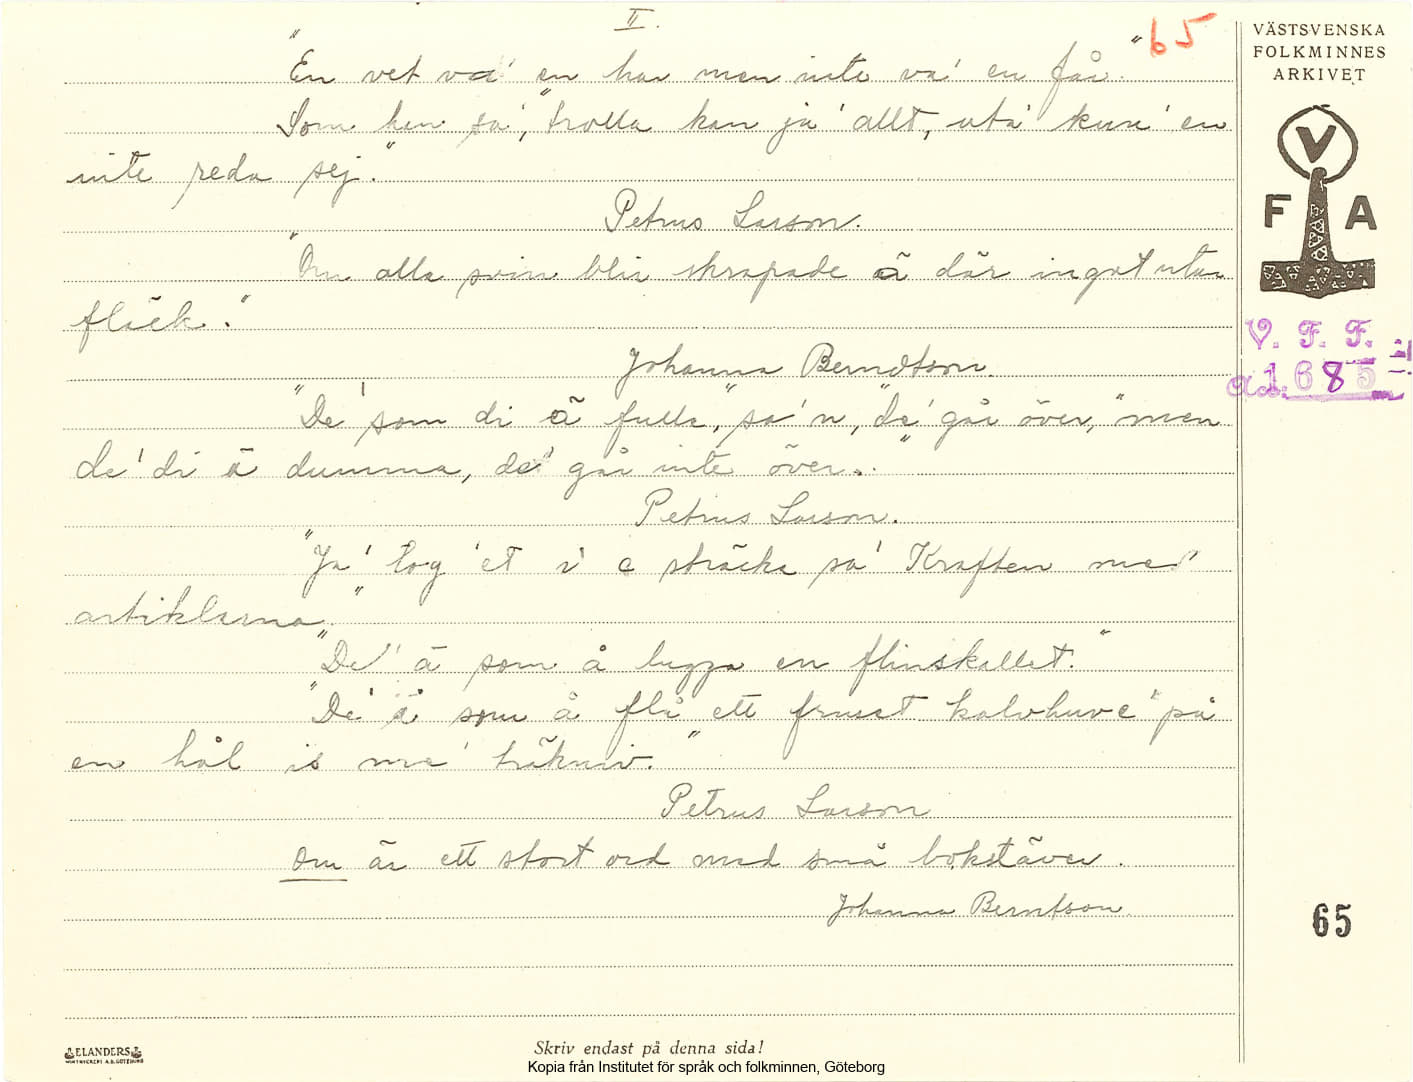 II.
65
"En vet va' en har men inte va' en får."
Som han sa', "trolla kan ja' allt, uta' kun' en
inte reda sej."
Petrus Larson.
"Om alla svin blir skrapade ä där inget utan
fläck."
Johanna Berndtson.
"De' som di ä fulla," sa'n, "de' går över," men
de' di ä dumma, de' går inte över."
Petrus Larson.
"Ja' tog 'et i e sträcka sa' Kraften med
artiklarna"
"De' ä som å lugga en flinskallet."
"De' ä som å flå ett fruset kalvhuve' på
en hål is me' träkniv."
Petrus Larson
Om är ett stort ord med små bokstäver.
Johanna Berntson.
VÄSTSVENSKA
FOLKMINNES
ARKIVET
V
F A
V. F. F.
1685
65
ELANDERS
Skriv endast på denna sida!
Kopia från Institutet för språk och folkminnen, Göteborg